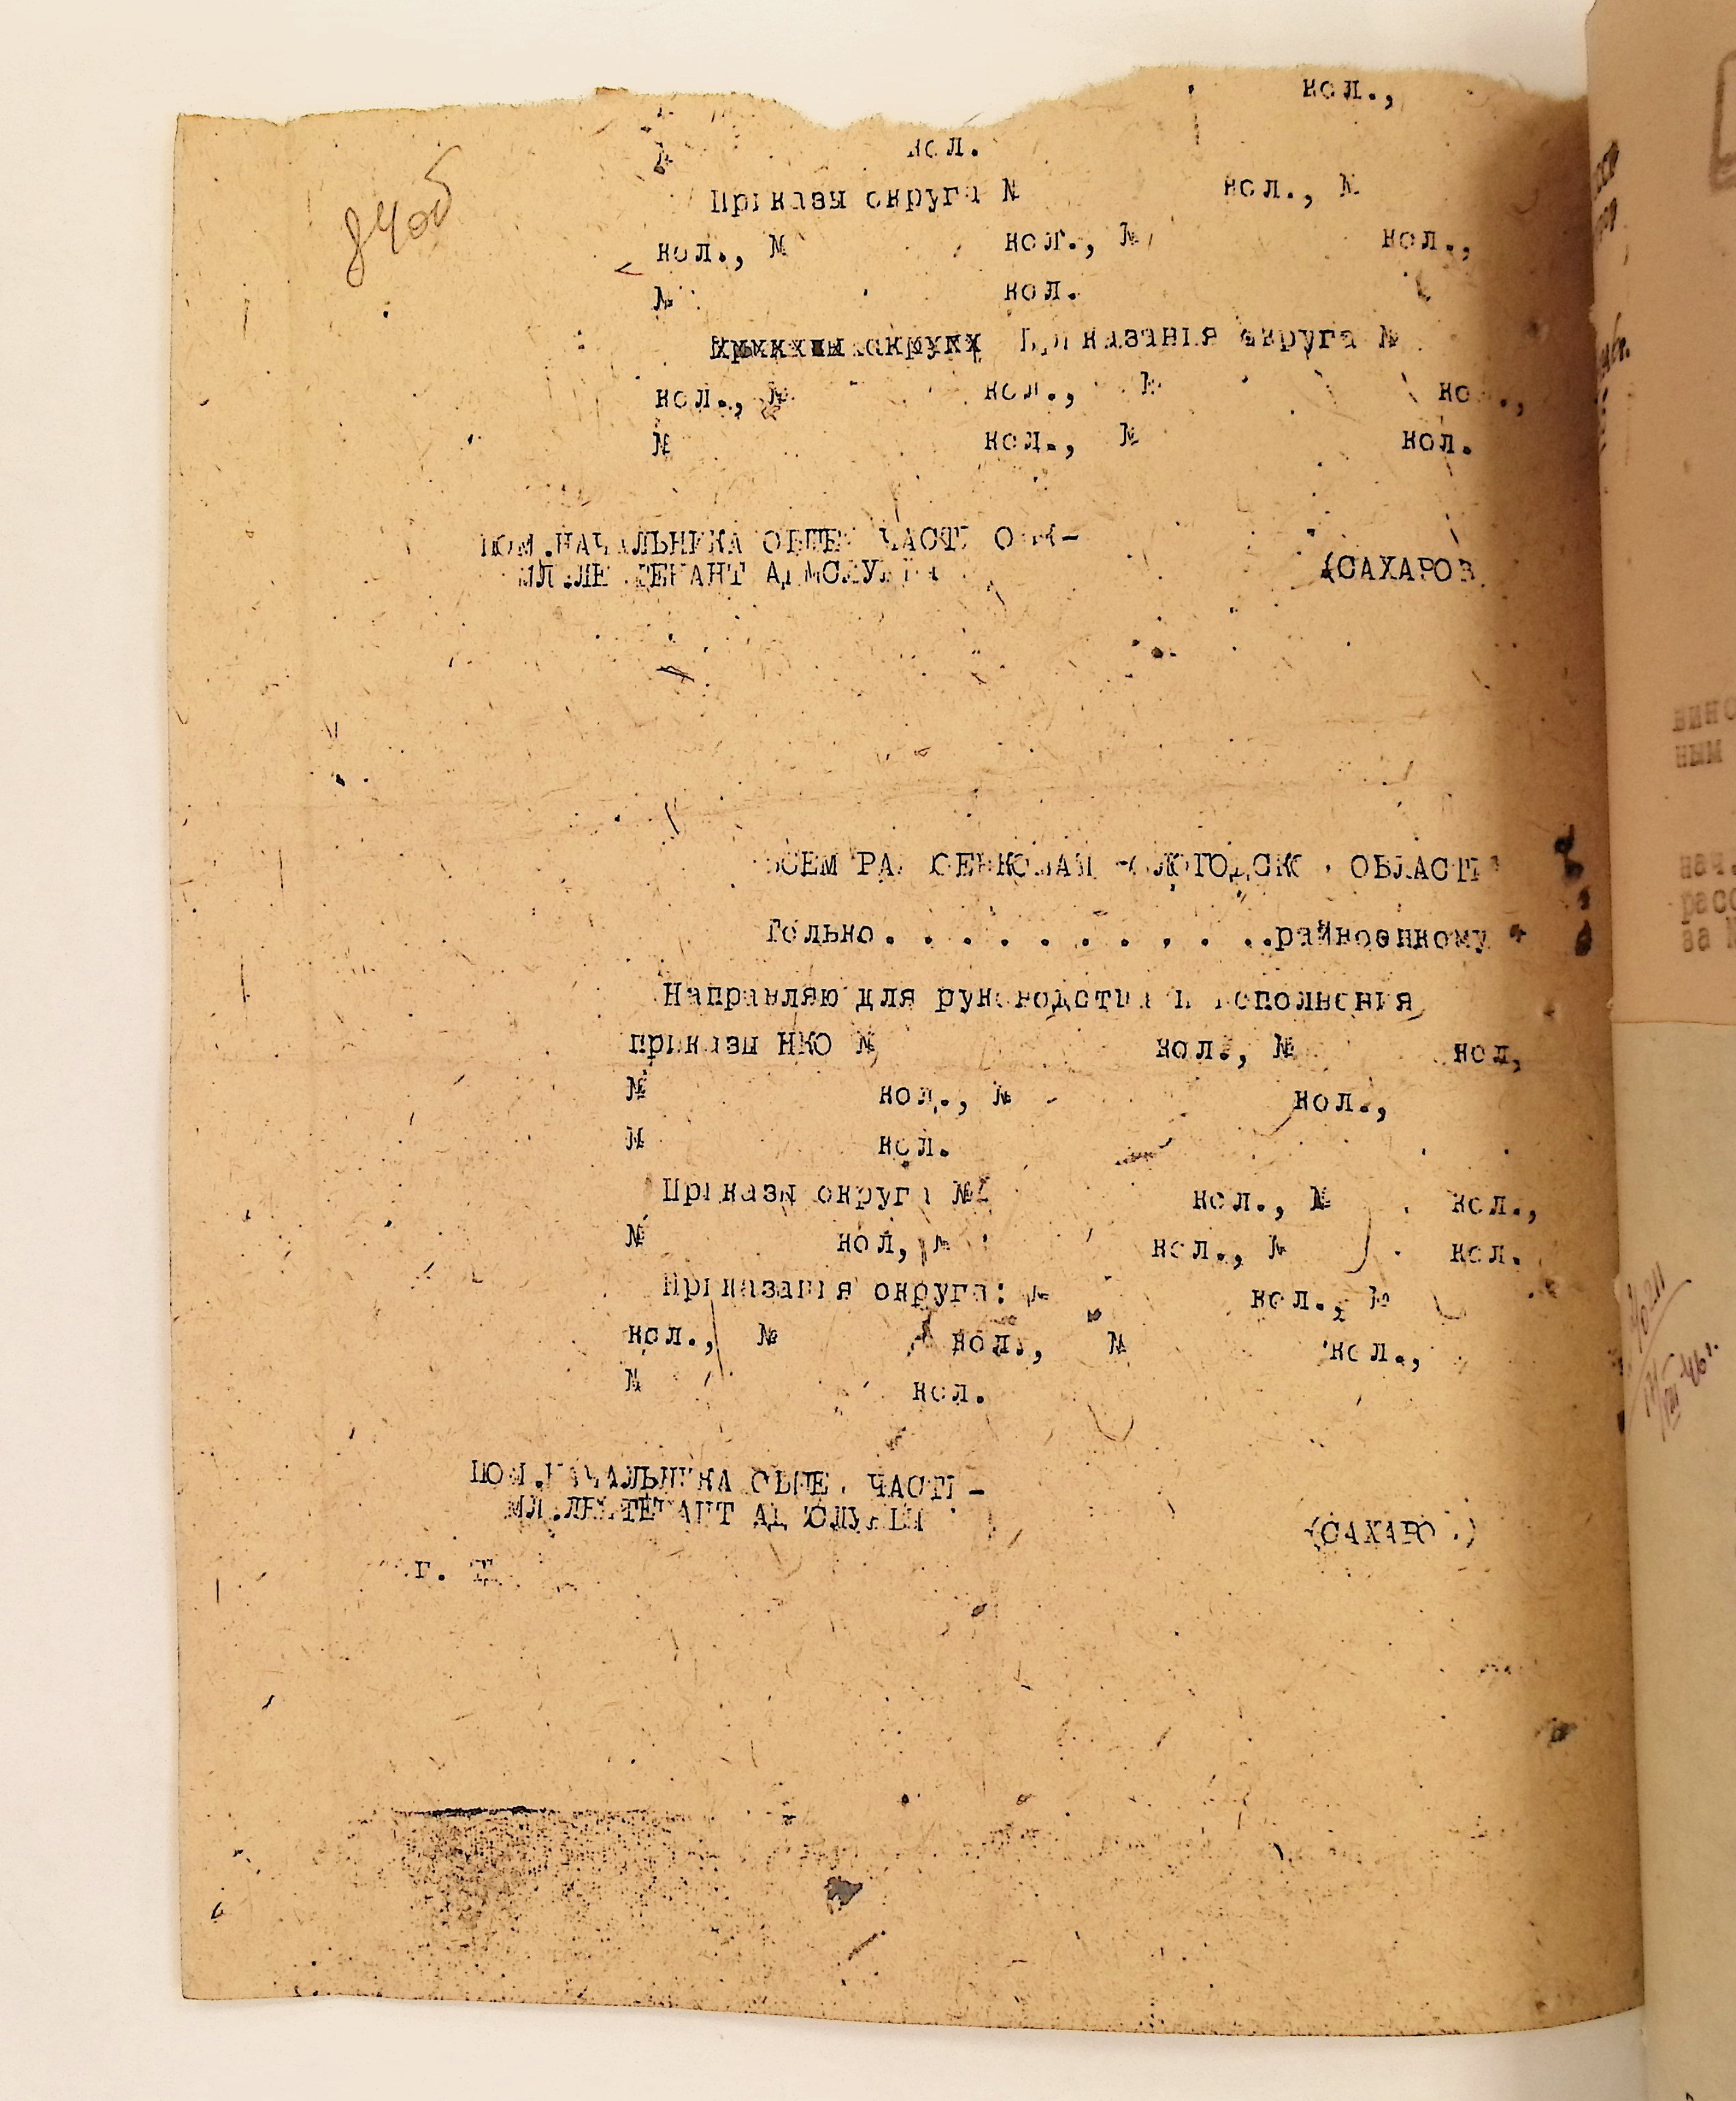 84об
кол.,
№ кол.
Приказы округа № кол., №
кол., № кол., № кол.,
№ кол.
Приказания округа №
кол., № кол., № кол.,
№ кол., № кол.
ПОМ.НАЧАЛЬНИКА ОБЩЕЙ ЧАСТИ ОВК-
МЛ.ЛЕЙТЕНАНТ АДМСЛУЖБЫ (САХАРОВ)
ВСЕМ РАЙВОЕНКОМАМ ВОЛОГОДСКОЙ ОБЛАСТИ
Только. . . . . . . . . ..райвоенкому
Направляю для руководства и исполнения
приказы НКО № кол., № кол,
№ кол., № кол.,
№ кол.
Приказы округа № кол., № кол.,
№ кол, № кол., № кол.
Приказания округа: № кол., №
кол., № кол., № кол.,
№ кол.
ПОМ.НАЧАЛЬНИКА ОБЩЕЙ ЧАСТИ -
МЛ.ЛЕЙТЕНАНТ АДМСЛУЖБЫ (САХАРОВ)
вино
ным
нач.
расс
за №